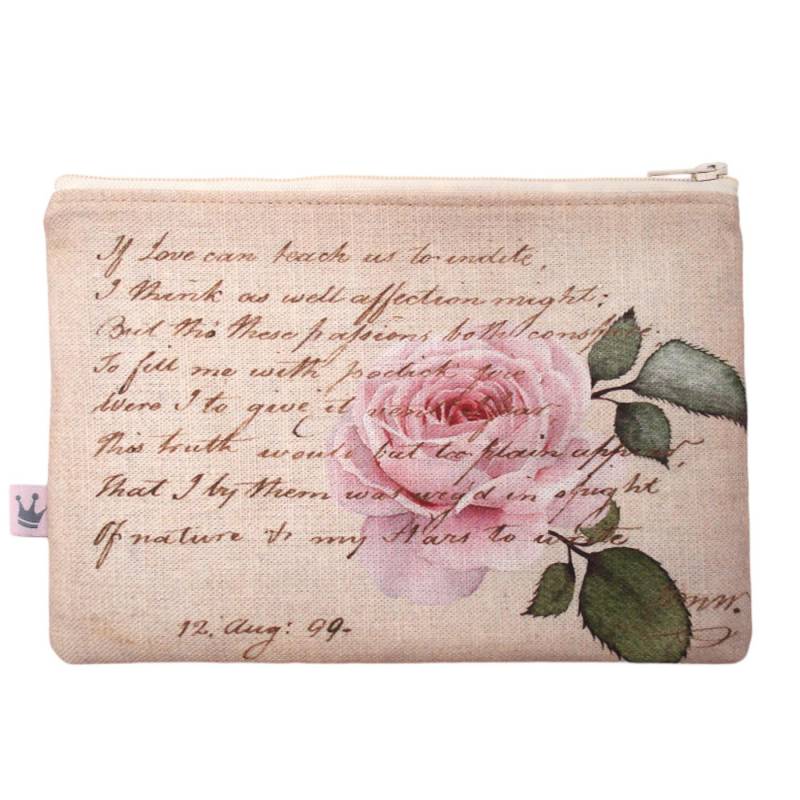 If Love can teach us to indite,
I think as well affection might:
But tho' these passions both conspire.
To fill me with poetick fire
Were I to give it vent I fear
this truth would but too plain appear,
That I by them was urg'd in spight
Of nature & my Stars to write
12. Aug: 99.